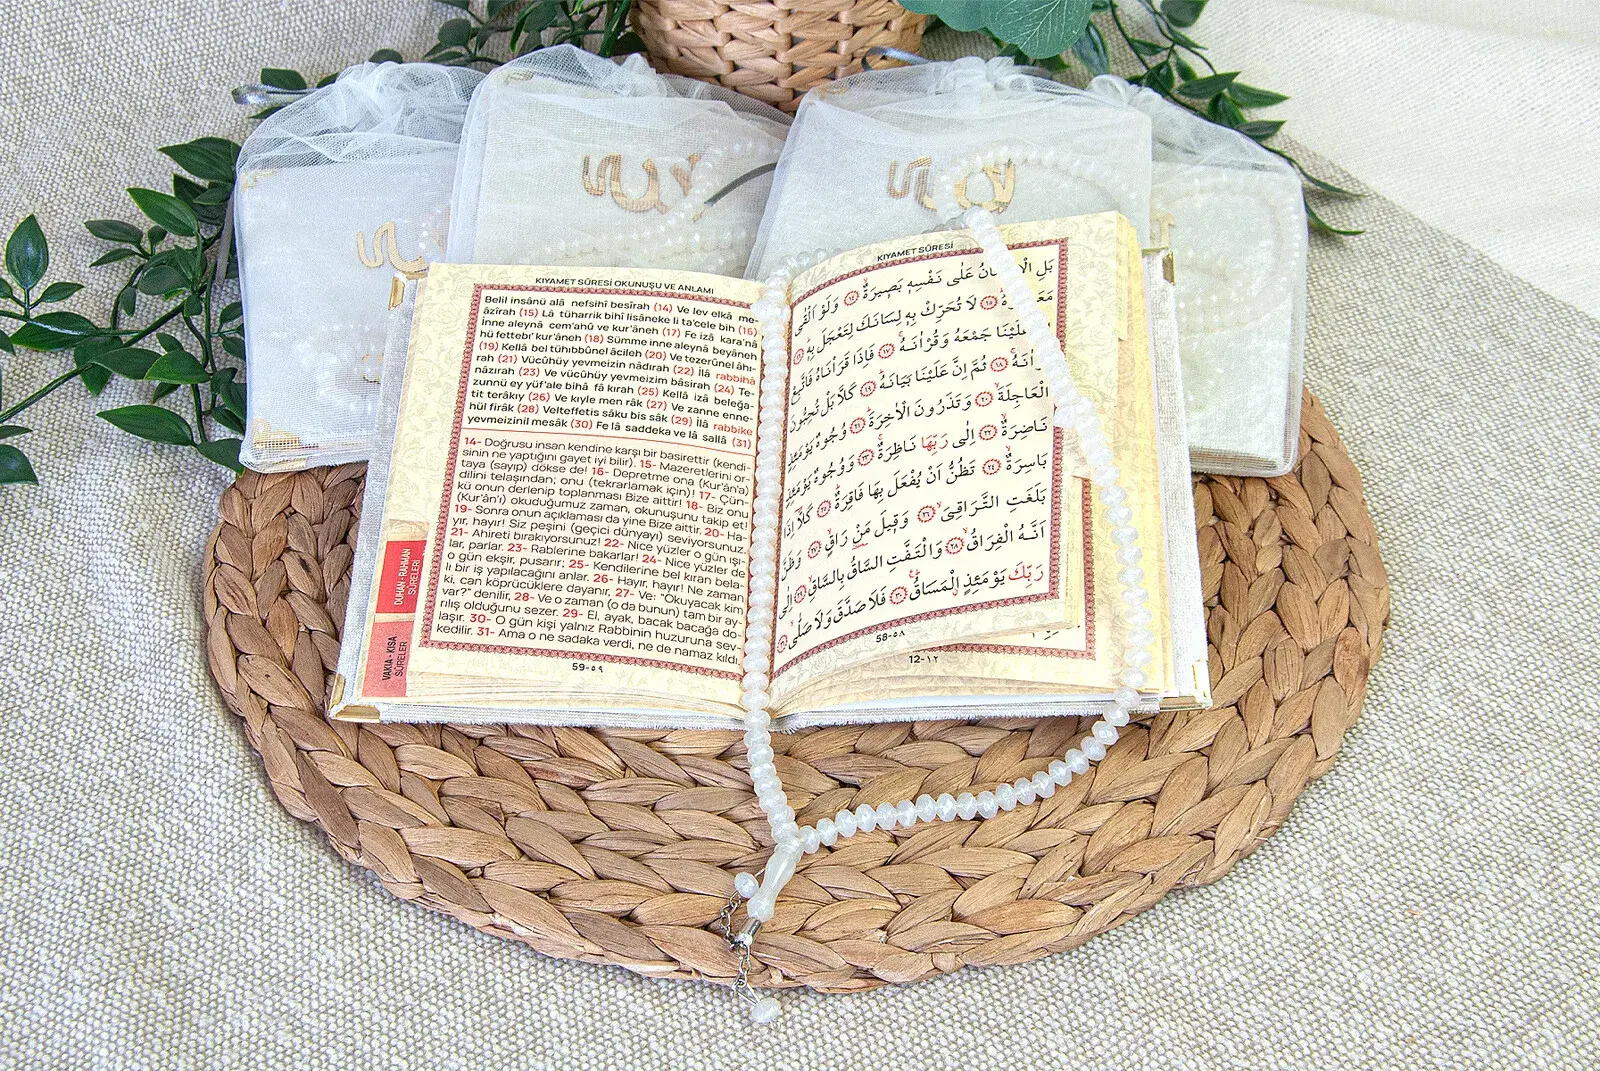 KIYAMET SÛRESİ OKUNUŞU VE ANLAMI
Belil insânü alâ nefsihî besîrah (14) Ve lev elka me-
âzîrah (15) Lâ tüharrik bihî lisâneke li ta'cele bih (16)
İnne aleynâ cem'ahû ve kur'âneh (17) Fe izâ kara'nâ
hü fettebı' kur'âneh (18) Sümme inne aleynâ beyâneh
(19) Kellâ bel tühıbbûnel âcileh (20) Ve tezerûnel âhı-
rah (21) Vücûhüy yevmeizin nâdırah (22) İlâ rabbihâ
nâzırah (23) Ve vücûhüy yevmeizim bâsirah (24) Te-
zunnü ey yüf'ale bihâ fâ kırah (25) Kellâ izâ beleğa-
tit terâkıy (26) Ve kıyle men râk (27) Ve zanne enne-
hül firâk (28) Velteffetis sâku bis sâk (29) İlâ rabbike
yevmeizinil mesâk (30) Fe lâ saddeka ve lâ sallâ (31)
14- Doğrusu insan kendine karşı bir basirettir (kendi-
sinin ne yaptığını gayet iyi bilir). 15- Mazeretlerini or-
taya (sayıp) dökse de! 16- Depretme ona (Kur'ân'a)
dilini telaşından; onu (tekrarlamak için)! 17- Çün-
kü onun derlenip toplanması Bize aittir! 18- Biz onu
(Kur'ân'ı) okuduğumuz zaman, okunuşunu takip et!
19- Sonra onun açıklaması da yine Bize aittir. 20- Ha-
yır, hayır! Siz peşini (geçici dünyayı) seviyorsunuz.
21- Ahireti bırakıyorsunuz! 22- Nice yüzler o gün ışı-
lar, parlar. 23- Rablerine bakarlar! 24- Nice yüzler de
o gün ekşir, pusarır; 25- Kendilerine bel kıran bela-
lı bir iş yapılacağını anlar. 26- Hayır, hayır! Ne zaman
ki, can köprücüklere dayanır, 27- Ve: "Okuyacak kim
var?" denilir, 28- Ve o zaman (o da bunun) tam bir ay-
rılış olduğunu sezer. 29- El, ayak, bacak bacağa do-
laşır. 30- O gün kişi yalnız Rabbinin huzuruna sev-
kedilir. 31- Ama o ne sadaka verdi, ne de namaz kıldı.
59-٥٩
DUHAN - RAHMAN
SÛRELERİ
VAKIA - KISA
SÛRELER
KIYAMET SÛRESİ
بَلِ الْاِنْسَانُ عَلٰى نَفْسِهٖ بَصٖيرَةٌ ﴿١٤﴾ وَلَوْ اَلْقٰى
مَعَاذٖيرَهُ ﴿١٥﴾ لَا تُحَرِّكْ بِهٖ لِسَانَكَ لِتَعْجَلَ بِهٖ ﴿١٦﴾
عَلَيْنَا جَمْعَهُ وَقُرْاٰنَهُ ﴿١٧﴾ فَاِذَا قَرَأْنَاهُ فَاتَّبِعْ
قُرْاٰنَهُ ﴿١٨﴾ ثُمَّ اِنَّ عَلَيْنَا بَيَانَهُ ﴿١٩﴾ كَلَّا بَلْ تُحِبُّونَ
الْعَاجِلَةَ ﴿٢٠﴾ وَتَذَرُونَ الْاٰخِرَةَ ﴿٢١﴾ وُجُوهٌ يَوْمَئِذٍ
نَاضِرَةٌ ﴿٢٢﴾ اِلٰى رَبِّهَا نَاظِرَةٌ ﴿٢٣﴾ وَوُجُوهٌ يَوْمَئِذٍ
بَاسِرَةٌ ﴿٢٤﴾ تَظُنُّ اَنْ يُفْعَلَ بِهَا فَاقِرَةٌ ﴿٢٥﴾ كَلَّا اِذَا
بَلَغَتِ التَّرَاقِىَ ﴿٢٦﴾ وَقٖيلَ مَنْ رَاقٍ ﴿٢٧﴾ وَظَنَّ
اَنَّهُ الْفِرَاقُ ﴿٢٨﴾ وَالْتَفَّتِ السَّاقُ بِالسَّاقِ ﴿٢٩﴾ اِلٰى
رَبِّكَ يَوْمَئِذٍ الْمَسَاقُ ﴿٣٠﴾ فَلَا صَدَّقَ وَلَا صَلّٰى ﴿٣١﴾
58-٥٨
12-١٢